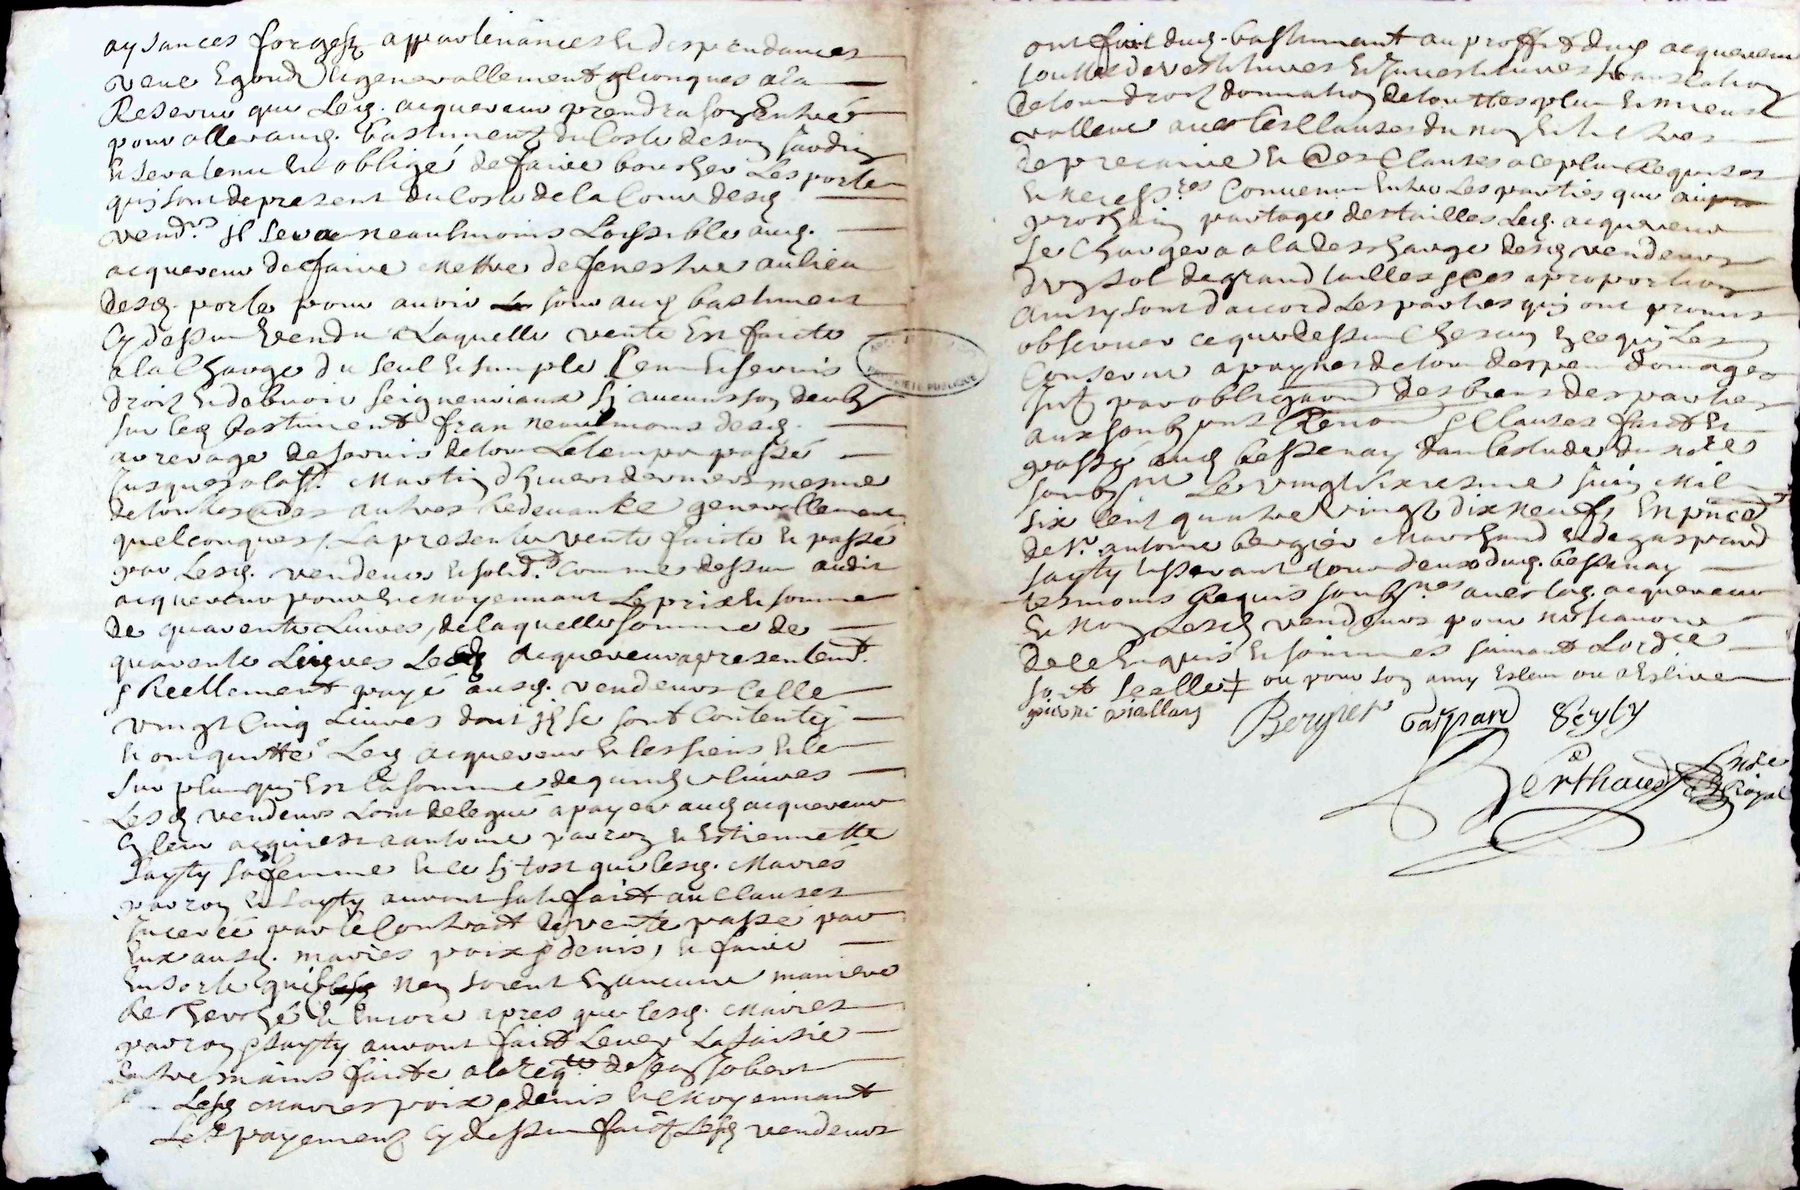 aysances forgest appartenances et despendances
veue Egoud et generallement qlconques a la
Reserve que Led. acquereur prendra son Entrée
pour aller aud. bastiment du Coste de son Jardin
et sera tenu et obligé de faire boucher Les porte
quy sont de present du Coste de la Cour desd.
vendrs. Il sera neaulmoins Loissible aud.
acquereur de faire Mettre de fenestres au lieu
desd. porte pour avoir jour aud bastiment
Cy dessus vendu Laquelle vente Est faicte
a la Charge du seul et simple Cens et servis
droit et debvoir seigneuriaux sy aucuns son deubz
sur led bastiment fran neaulmoins desd.
arrerage de servis de tout Le temps passé
Jusques a la st. Martin d'hivers dernier mesme
de toutes autres Redevance generallement
quelconques / La presente vente faicte et passé
par Lesd. vendeurs et solid. Comme dessus audit
acquereur pour et Moyennant Le prix et somme
de quarente Livres, de laquelle somme de
quarente Livres Led acquereur a presentemt.
et Reellement payé ausd. vendeurs Celle
vingt Cinq Livres dont Ils se sont Contentés
et ont quitté Led acquereur et les siens et le
surplus quy Est la somme de quinze livres
Lesd vendeurs Lont delegué a payer aud acquereur
a antoine parron et Estiennette
Sayty sa femme et ce sy tost que lesd. Mariés
parron et Sayty auront satisfaict au Clauses
Inceréé par le Contract de vente passé par
Eux ausd. mariés poix et denis, et faire
En sorte quil Nen soient En aucune maniere
Recherché et Encore apres que lesd. Mariés
parron et Sayty auront faict Lever La saisie
Entre mains faicte a la reqte de Jean Jobert
Lesd Mariés poix et denis et Moyennant
Led payement Cy dessus faict Lesd vendeurs
ont faict dud. bastiment au proffit dud acquereur
touttes devestitures et Investitures translation
de tous droit donnation de touttes plus et mieux
valleur avec Les Clauses du Non et tiltres
de precaire et des Clauses a ce plus Requises
et necessres Convenu Entre Les parties que au
prochain partage des tailles Led. acquereur
Se Chargera a la descharge desd vendeurs
dun sol de grand tailles a proportion
ainsy sont daccord Les parties quy ont promis
observer ce que dessus Chescun En ce quy Les
Conserne a payne de tous despens domages
Int. par obligaon des biens des parties
aux soubzmis Renon et Clauses faict et
passé aud bessenay dans lestude du nore
soubzné Le vingt sixiesme Juin Mil
six Cent quatre vingt dix neufs En pnce
de sr. antoine bergier Marchand et de gaspard
Sayty tisserant tous deux dud. bessenay
tesmoins Requis soubznes avec led. acquereur
et Non Lesd. vendeurs pour ne scavoir
de ce Enquis et sommés suivant Lordce
soit Scelle ‡ ou pour son amy Esleu ou a Eslire
Bergier Gaspard Seyty
Berthaud nore Royal